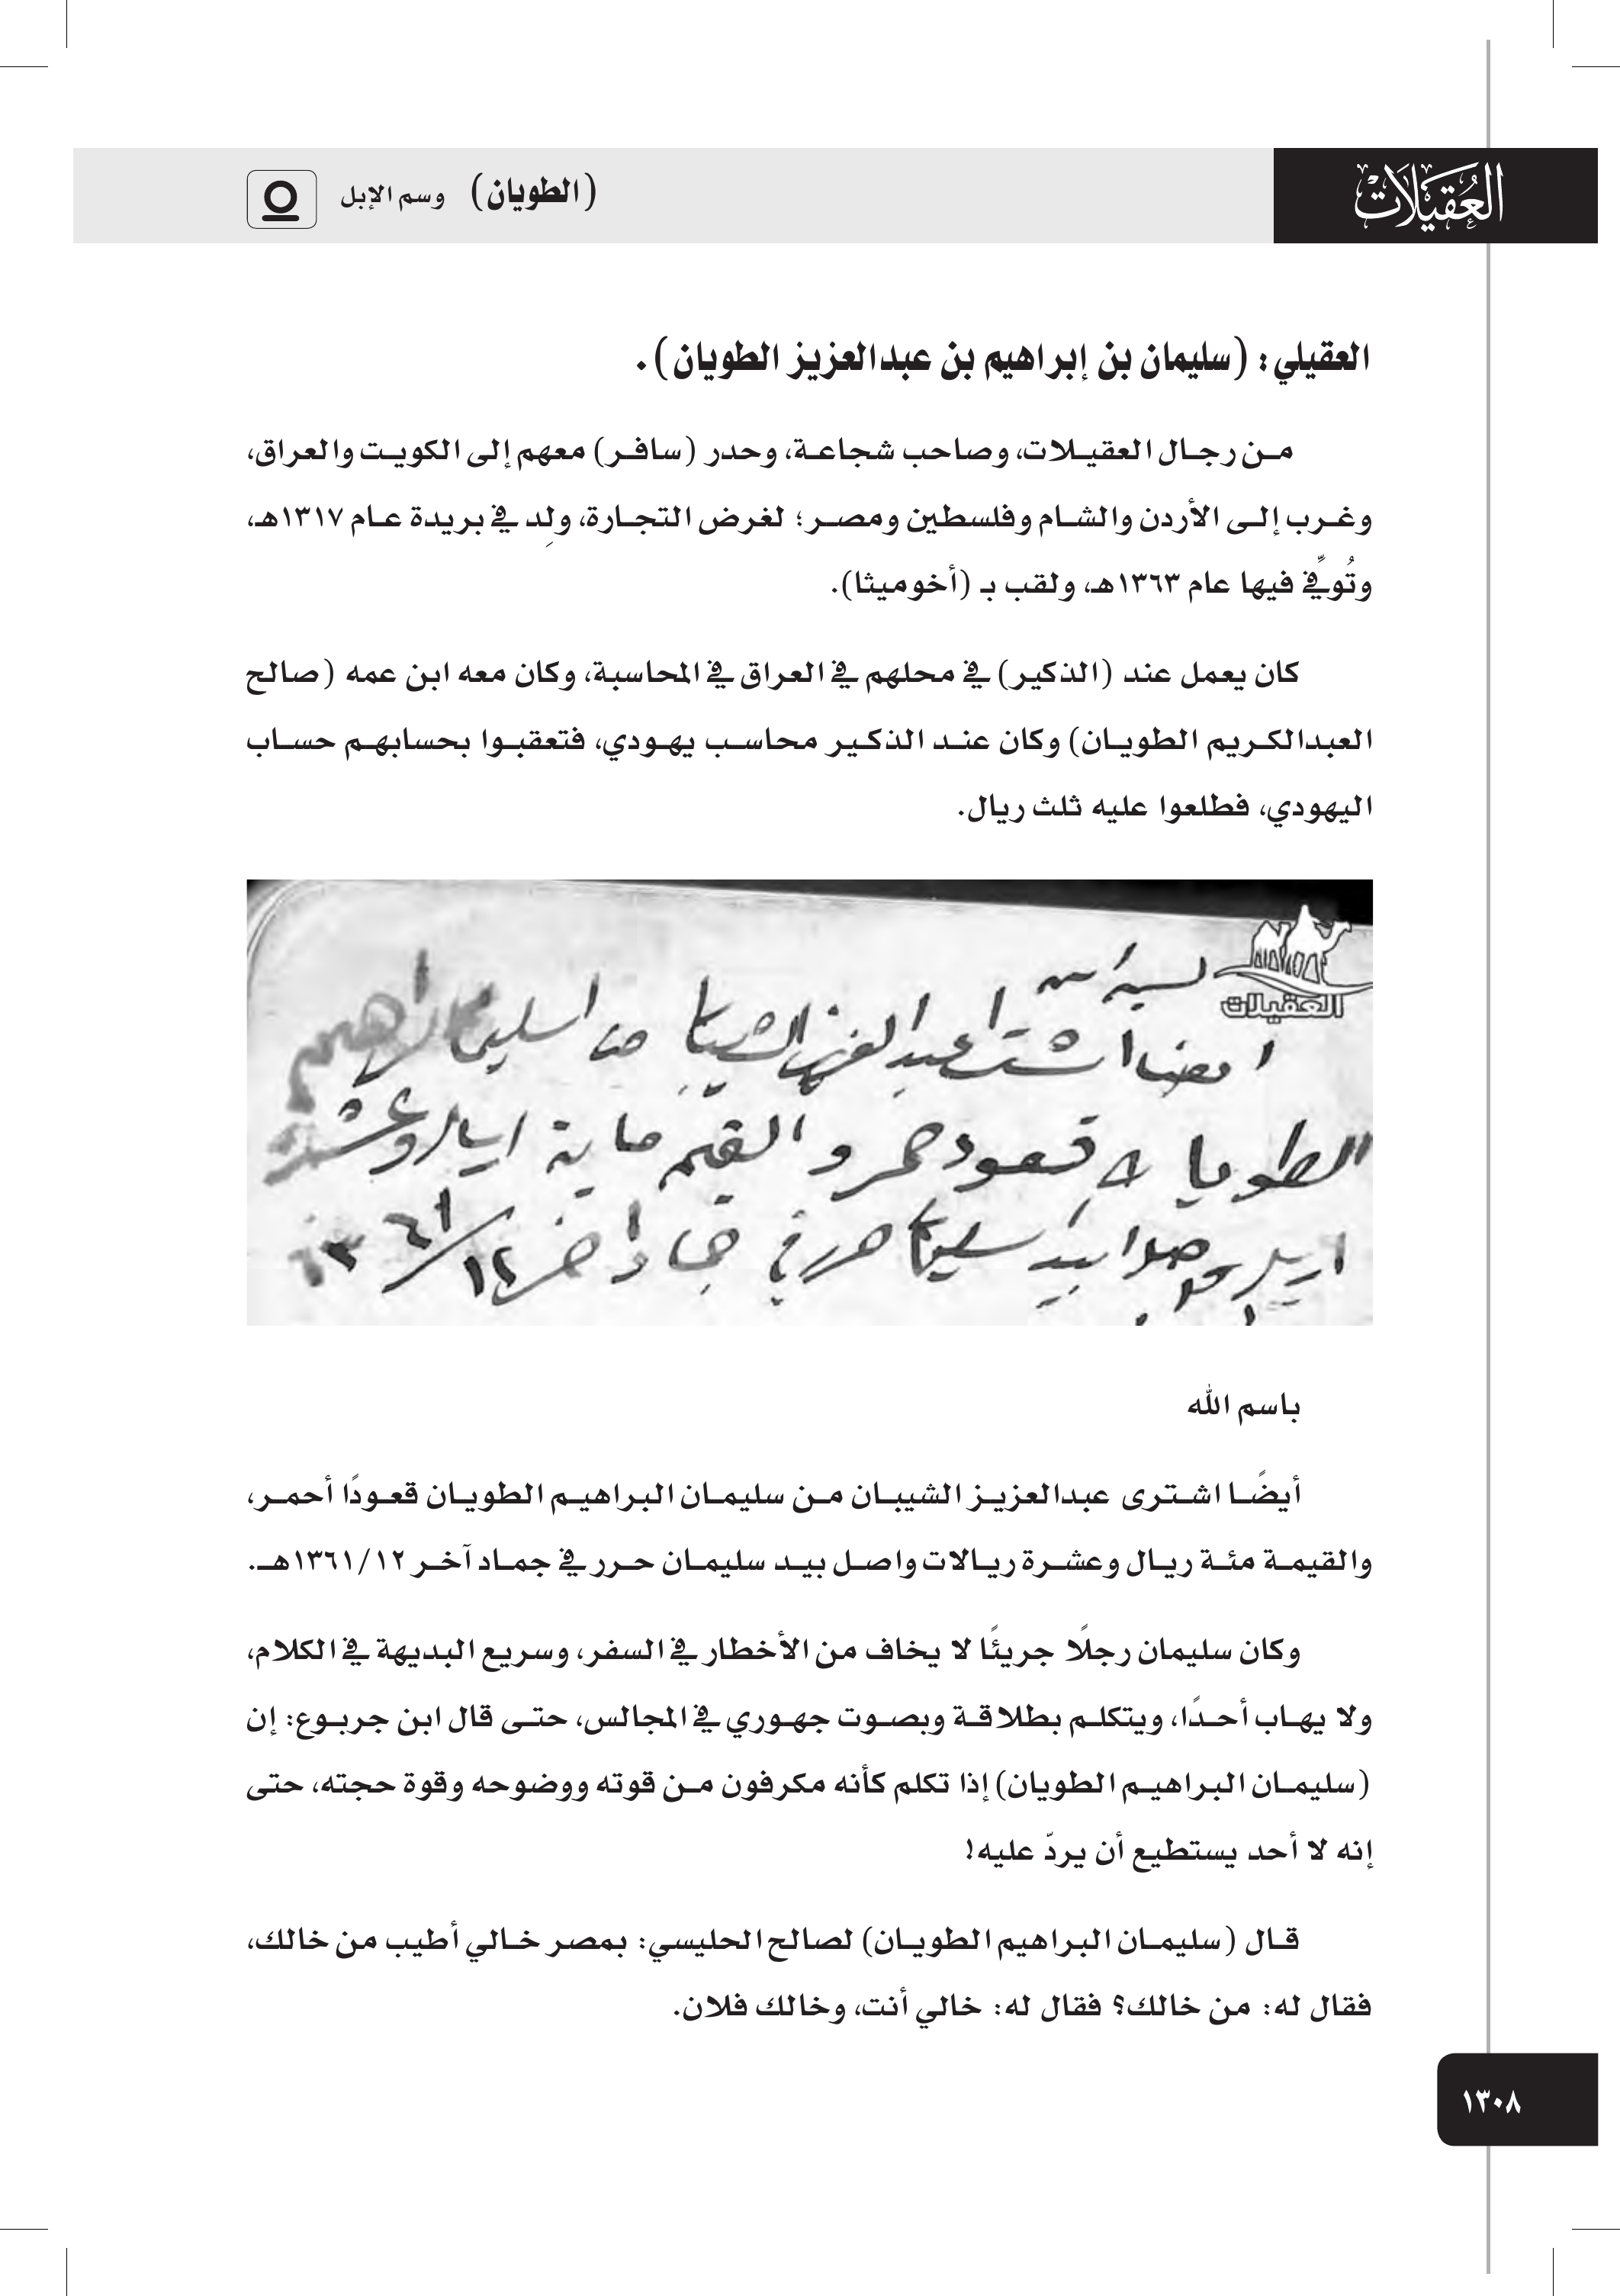 العُقيلات
(الطويان) وسم الإبل
العقيلي: (سليمان بن إبراهيم بن عبدالعزيز الطويان).
من رجال العقيلات، وصاحب شجاعة، وحدر (سافر) معهم إلى الكويت والعراق،
وغرب إلى الأردن والشام وفلسطين ومصر؛ لغرض التجارة، ولِد في بريدة عام ١٣١٧هـ،
وتُوفِّي فيها عام ١٣٦٣هـ، ولقب بـ (أخوميثا).
كان يعمل عند (الذكير) في محلهم في العراق في المحاسبة، وكان معه ابن عمه (صالح
العبدالكريم الطويان) وكان عند الذكير محاسب يهودي، فتعقبوا بحسابهم حساب
اليهودي، فطلعوا عليه ثلث ريال.
العقيلات
ايضا اشترا عبدالعزيز الشيبان من سليمان ابراهيم
الطويان قعود حمر والقيمه ماية اريال وعشرة
اريل بيد سليمان حرر في جماد اخر ١٢/ ١٣٦١
باسم الله
أيضًا اشترى عبدالعزيز الشيبان من سليمان البراهيم الطويان قعودًا أحمر،
والقيمة مئة ريال وعشرة ريالات واصل بيد سليمان حرر في جماد آخر ١٣٦١/١٢هـ.
وكان سليمان رجلًا جريئًا لا يخاف من الأخطار في السفر، وسريع البديهة في الكلام،
ولا يهاب أحدًا، ويتكلم بطلاقة وبصوت جهوري في المجالس، حتى قال ابن جربوع: إن
(سليمان البراهيم الطويان) إذا تكلم كأنه مكرفون من قوته ووضوحه وقوة حجته، حتى
إنه لا أحد يستطيع أن يردّ عليه!
قال (سليمان البراهيم الطويان) لصالح الحليسي: بمصر خالي أطيب من خالك،
فقال له: من خالك؟ فقال له: خالي أنت، وخالك فلان.
١٣٠٨